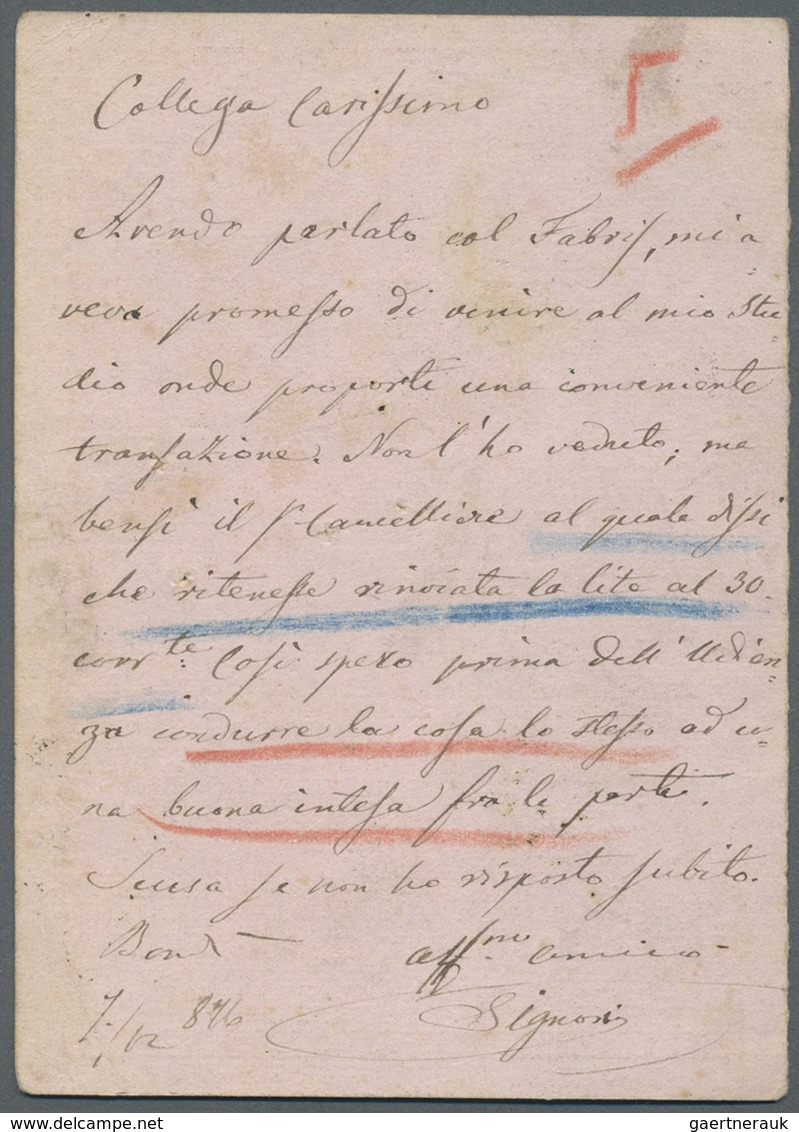 Collega Carissimo
5
Avendo parlato col Fabris, mi a
veva promesso di venire al mio Stu=
dio onde proporti una conveniente
transazione. Non l'ho veduto; ma
bensì il Sr Cancelliere al quale dissi
che ritenesse rinviata la lite al 30.
corrte. Così spero prima dell'Udien=
za condurre la cosa lo stesso ad u=
na buona intesa fra le parti.
Scusa se non ho risposto subito.
affmo amico
7/12 876
Signori
delcampe.net
gaertnerauk